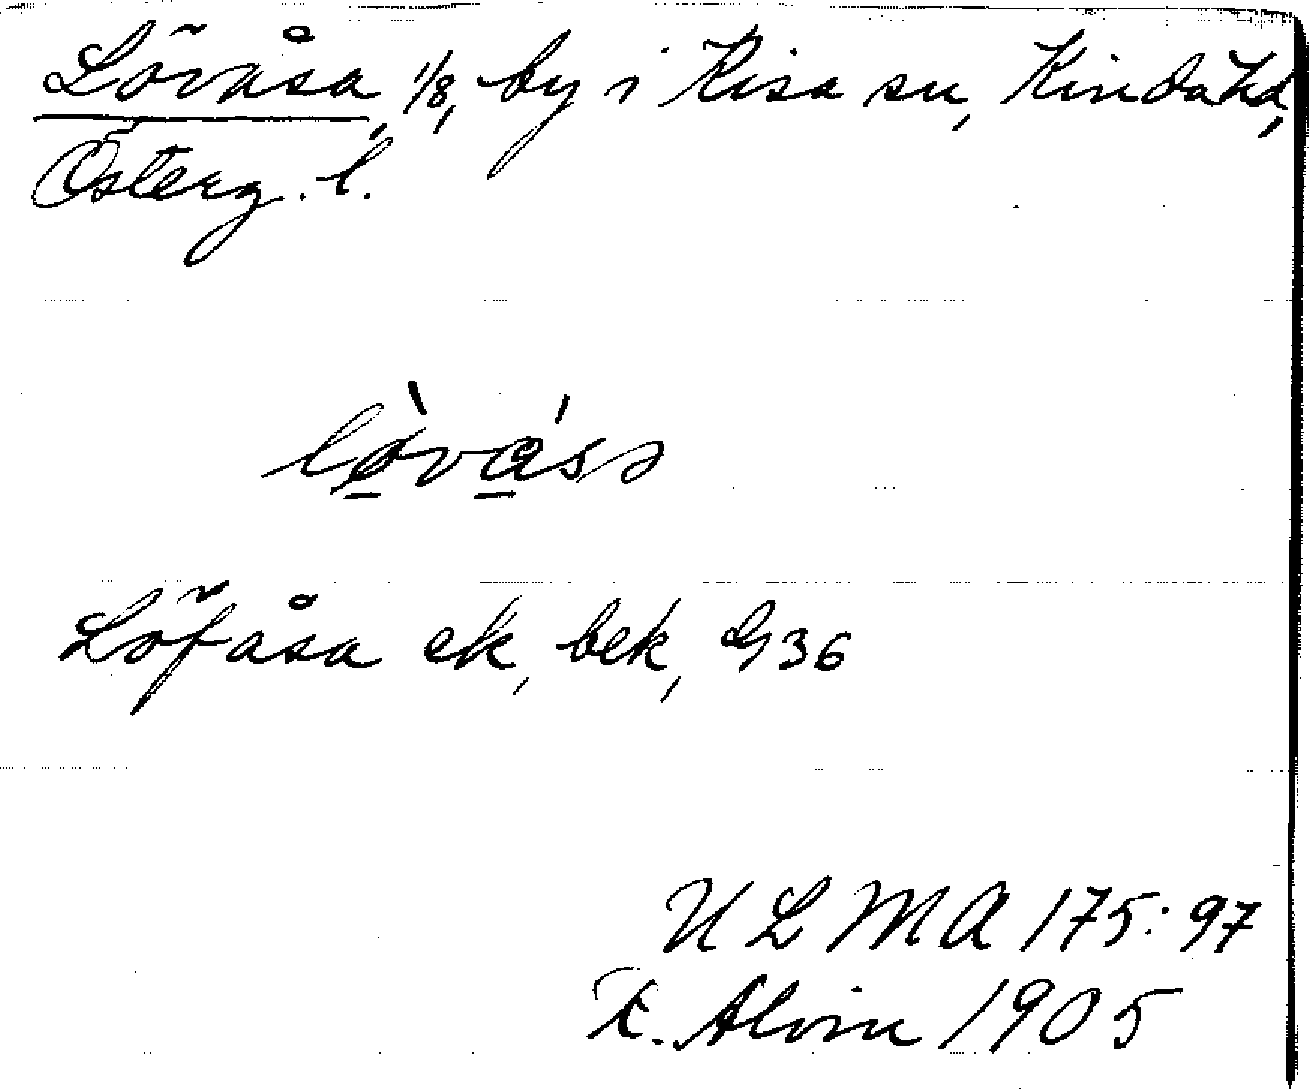 Lövåsa, 1/8, by i Kisa sn, Kinda hd,
Österg. l.
Löfåsa ek, bek, G36
ULMA 175:97
E. Alvin 1905